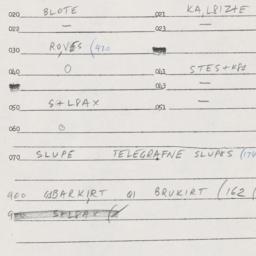 020 BLOTE 021 KA,LPIZ+E
022 — 023 —
030 ROVES (420
040 O 061 STES+KPS
063 —
051 —
050 S+LPAX
060 O
070 SLUPE TELEGRAFNE SLUPKS (174
900 GBARKIRT 91 BRUKIRT (162 (
S+LPAX (2